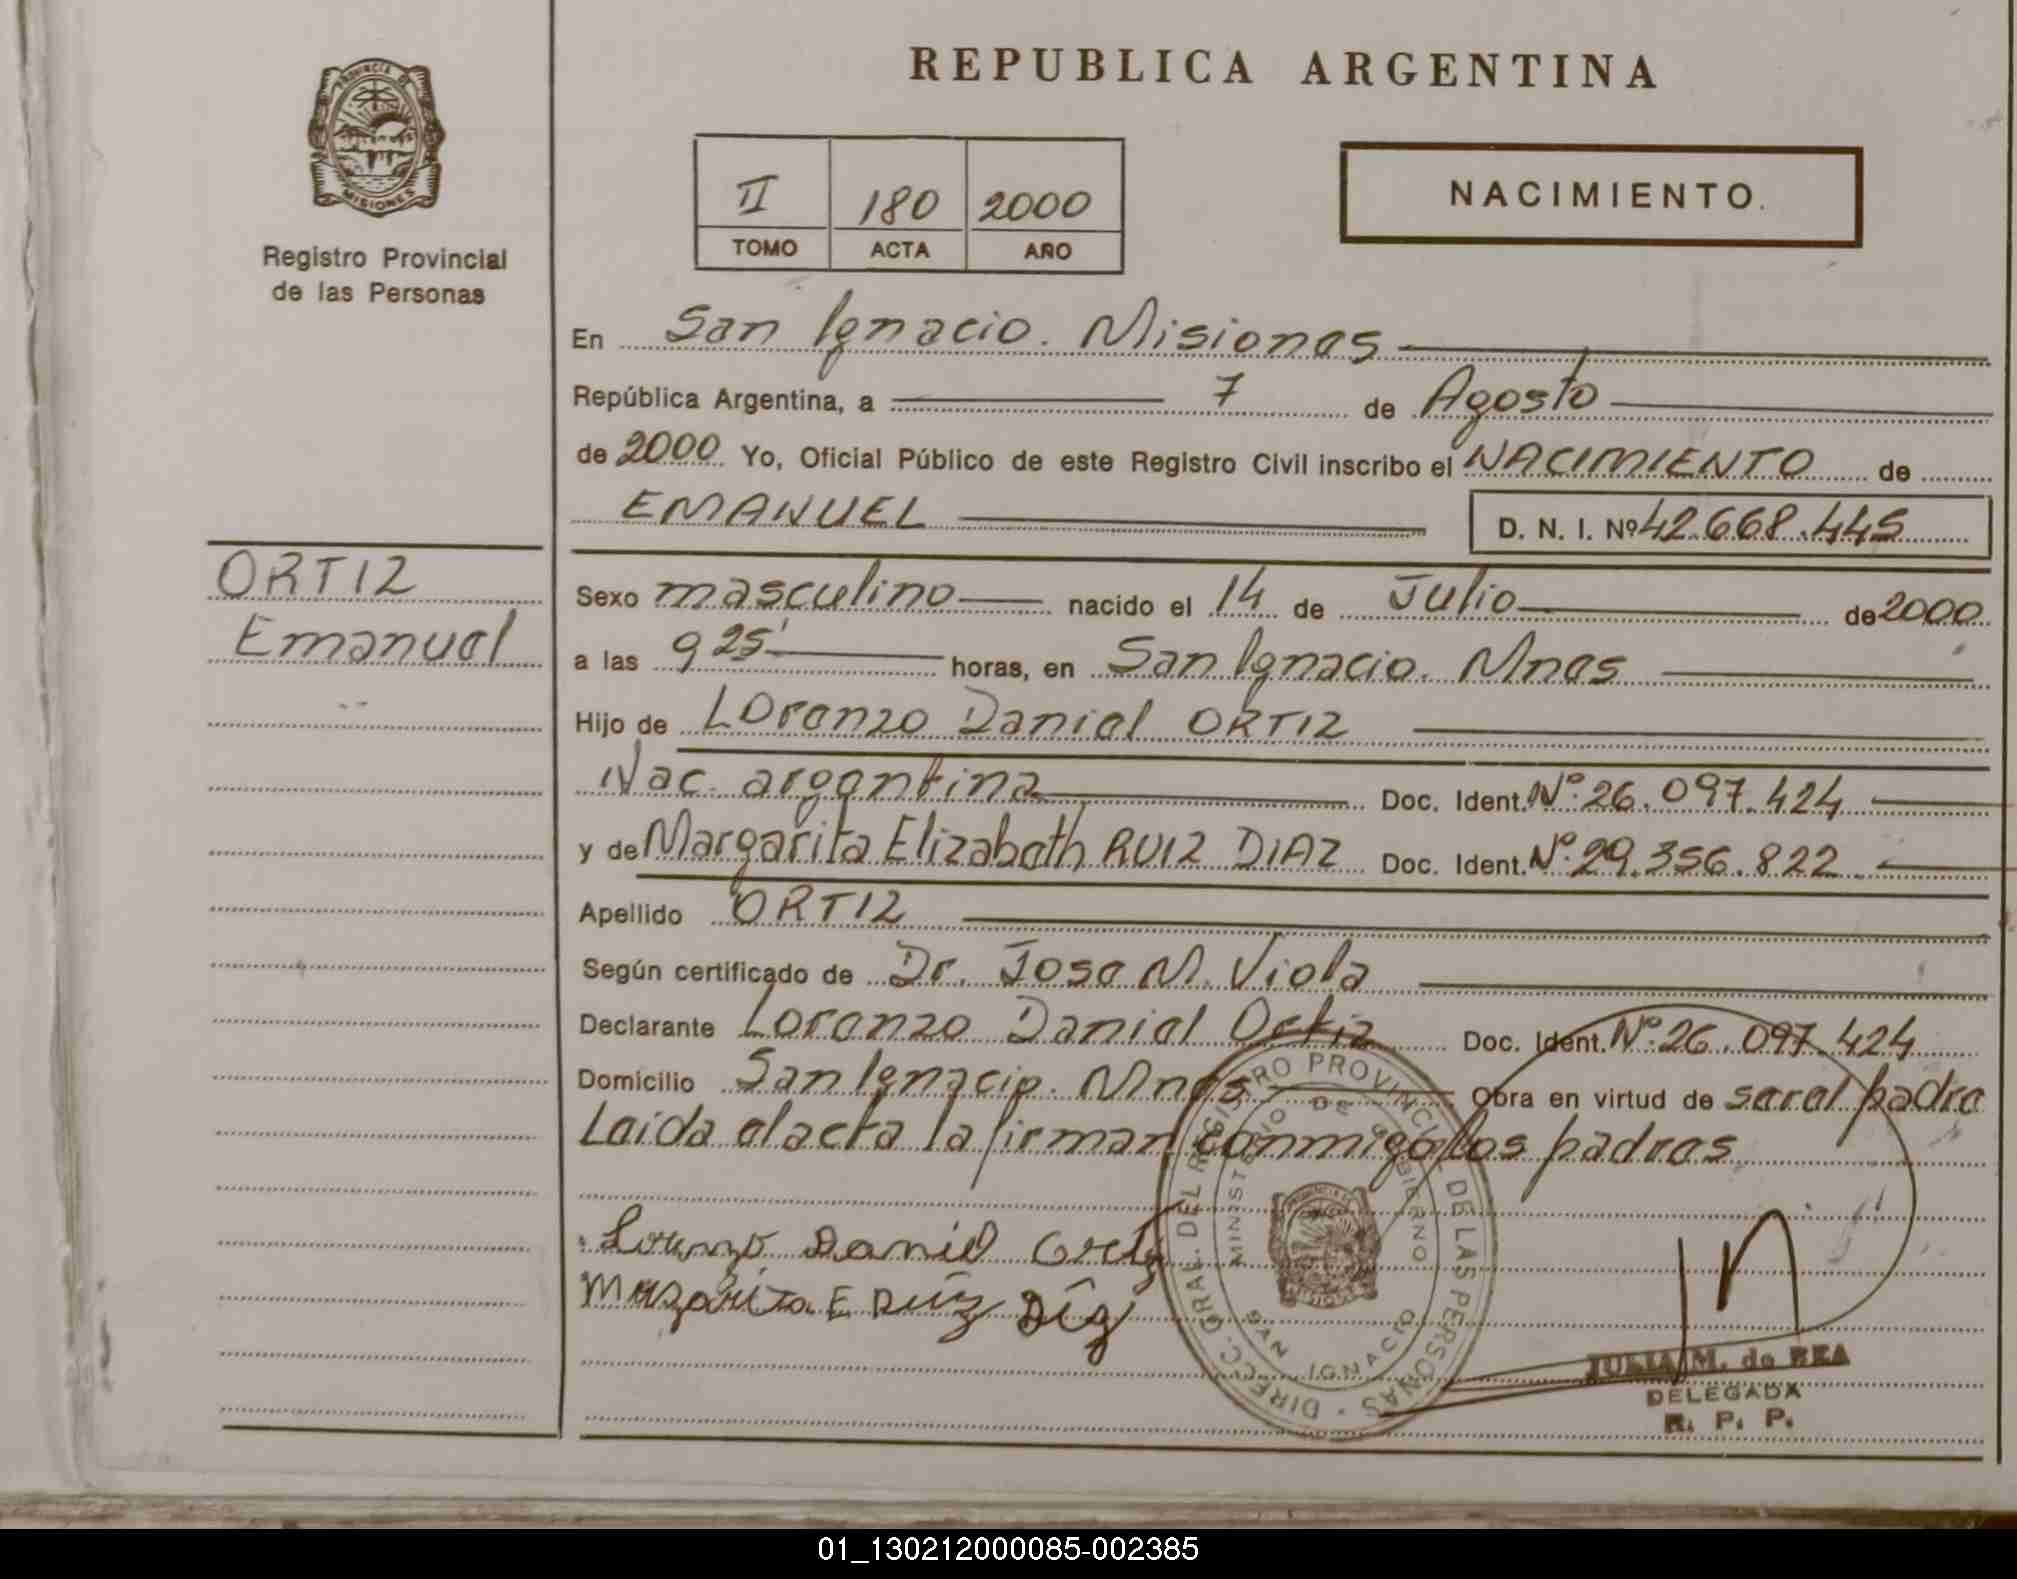 REPUBLICA ARGENTINA
PROVINCIA DE
MISIONES
Registro Provincial
de las Personas
II 180 2000
TOMO ACTA AÑO
NACIMIENTO.
En San Ignacio. Misiones
República Argentina, a 7 de Agosto
de 2000 Yo, Oficial Público de este Registro Civil inscribo el NACIMIENTO de
EMANUEL D. N. I. Nº 42.668.445
ORTIZ
Emanuel
Sexo masculino nacido el 14 de Julio de 2000
a las 9 25' horas, en San Ignacio. Mnes
Hijo de Lorenzo Daniel ORTIZ
Nac. argentina Doc. Ident. Nº 26.097.424
y de Margarita Elizabeth RUIZ DIAZ Doc. Ident. Nº 29.356.822
Apellido ORTIZ
Según certificado de Dr. Jose M. Viola
Declarante Lorenzo Daniel Ortiz Doc. Ident. Nº 26.097.424
Domicilio San Ignacio. Mnes Obra en virtud de ser el padre
Leida el acta la firman conmigo los padres
Lorenzo Daniel Ortiz
Margarita E Ruiz Diaz
DIRECC. GRAL. DEL REGISTRO PROVINCIAL DE LAS PERSONAS
MINISTERIO DE GOBIERNO
SAN IGNACIO
JULIA M. de REA
DELEGADA
R. P. P.
01_130212000085-002385